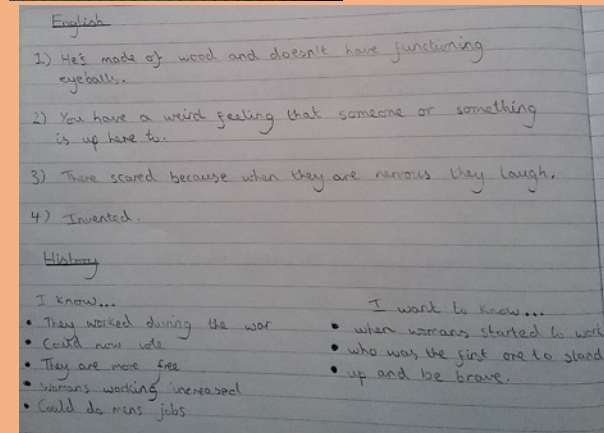 English
1.) He's made of wood and doesn't have functioning
eyeballs.
2) You have a weird feeling that someone or something
is up here to.
3) There scared because when they are nervous they laugh.
4) Invented.
History
I know...
• They worked during the war
• Could now vote
• They are more free
• Womans working increased
• Could do mens jobs
I want to know...
• when womans started to work
• who was the first one to stand
• up and be brave.